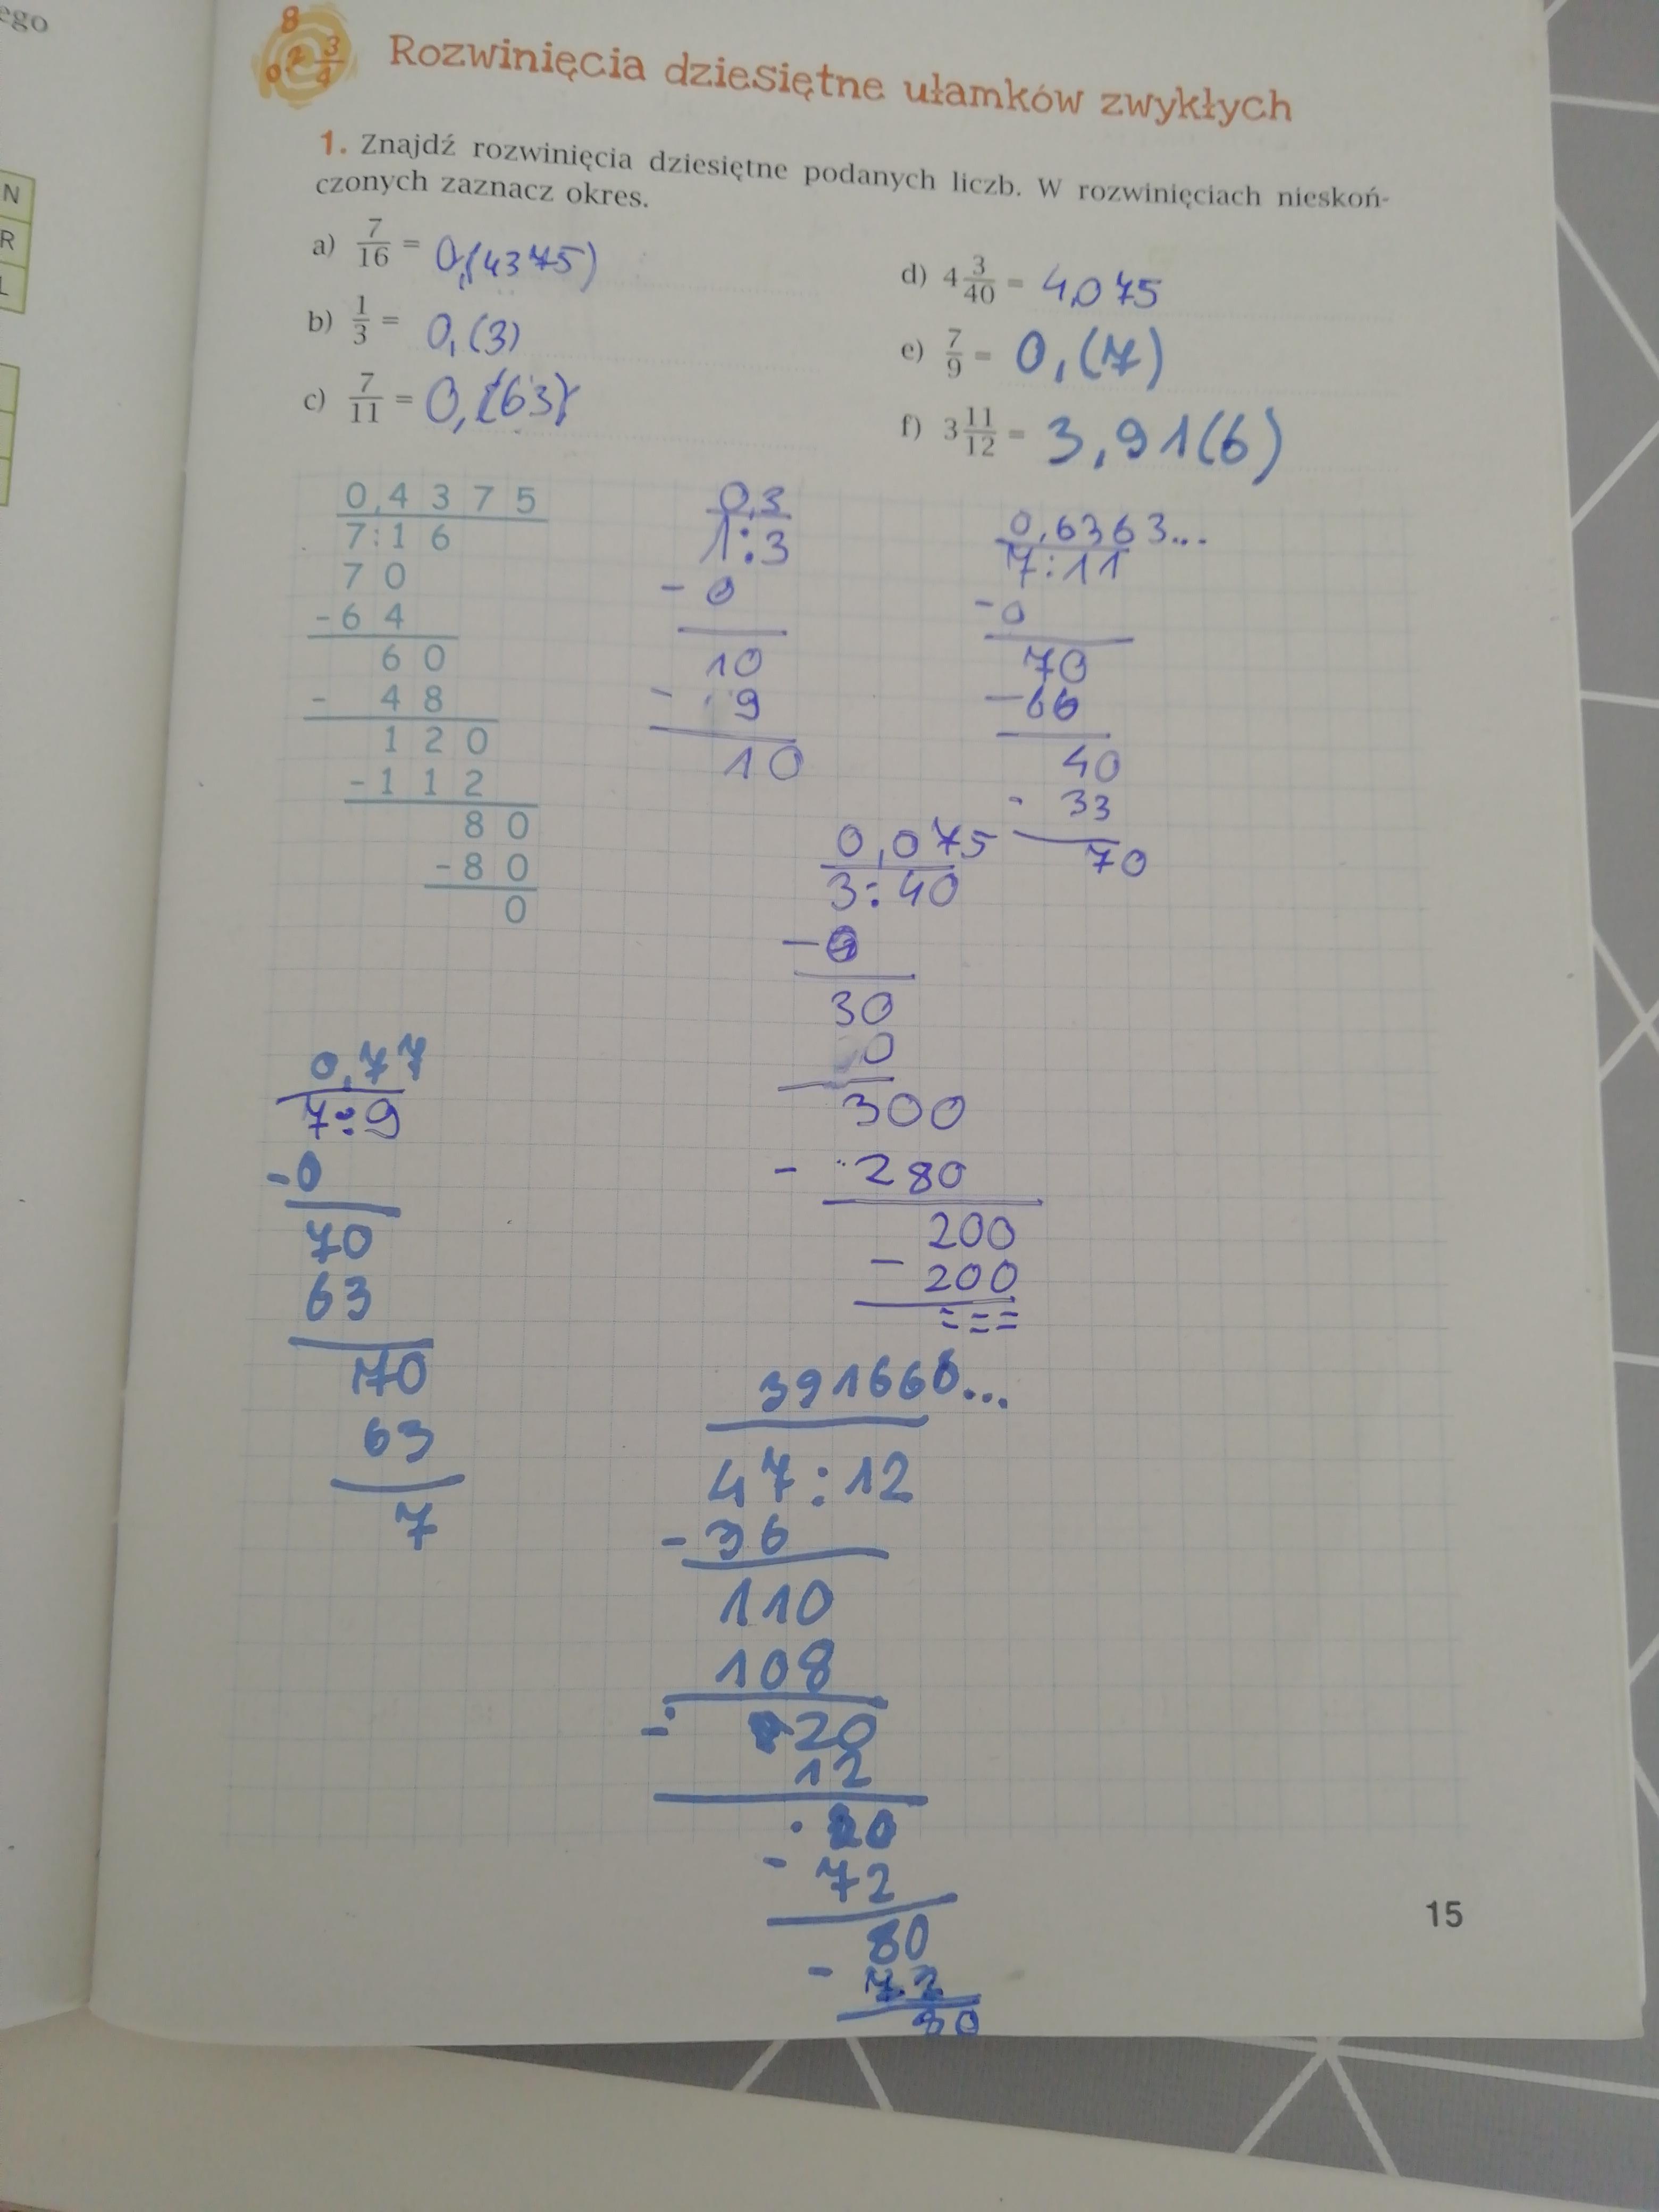 ego
N
R
L
8
0,2 3/4
Rozwinięcia dziesiętne ułamków zwykłych
1. Znajdź rozwinięcia dziesiętne podanych liczb. W rozwinięciach nieskoń-
czonych zaznacz okres.
a) 7/16 = 0,(4375)
b) 1/3 = 0,(3)
c) 7/11 = 0,(63)
d) 4 3/40 = 4,075
e) 7/9 = 0,(7)
f) 3 11/12 = 3,91(6)
0,4375
7:16
70
-64
60
- 48
120
-112
80
-80
0
0,3
1:3
- 0
10
- 9
10
0,6363...
7:11
-0
70
-66
40
- 33
70
0,075
3:40
-0
30
0
300
- 280
200
- 200
===
0,77
7:9
-0
70
63
70
63
7
391666...
47:12
-36
110
108
- 20
12
80
- 72
80
- 72
80
15